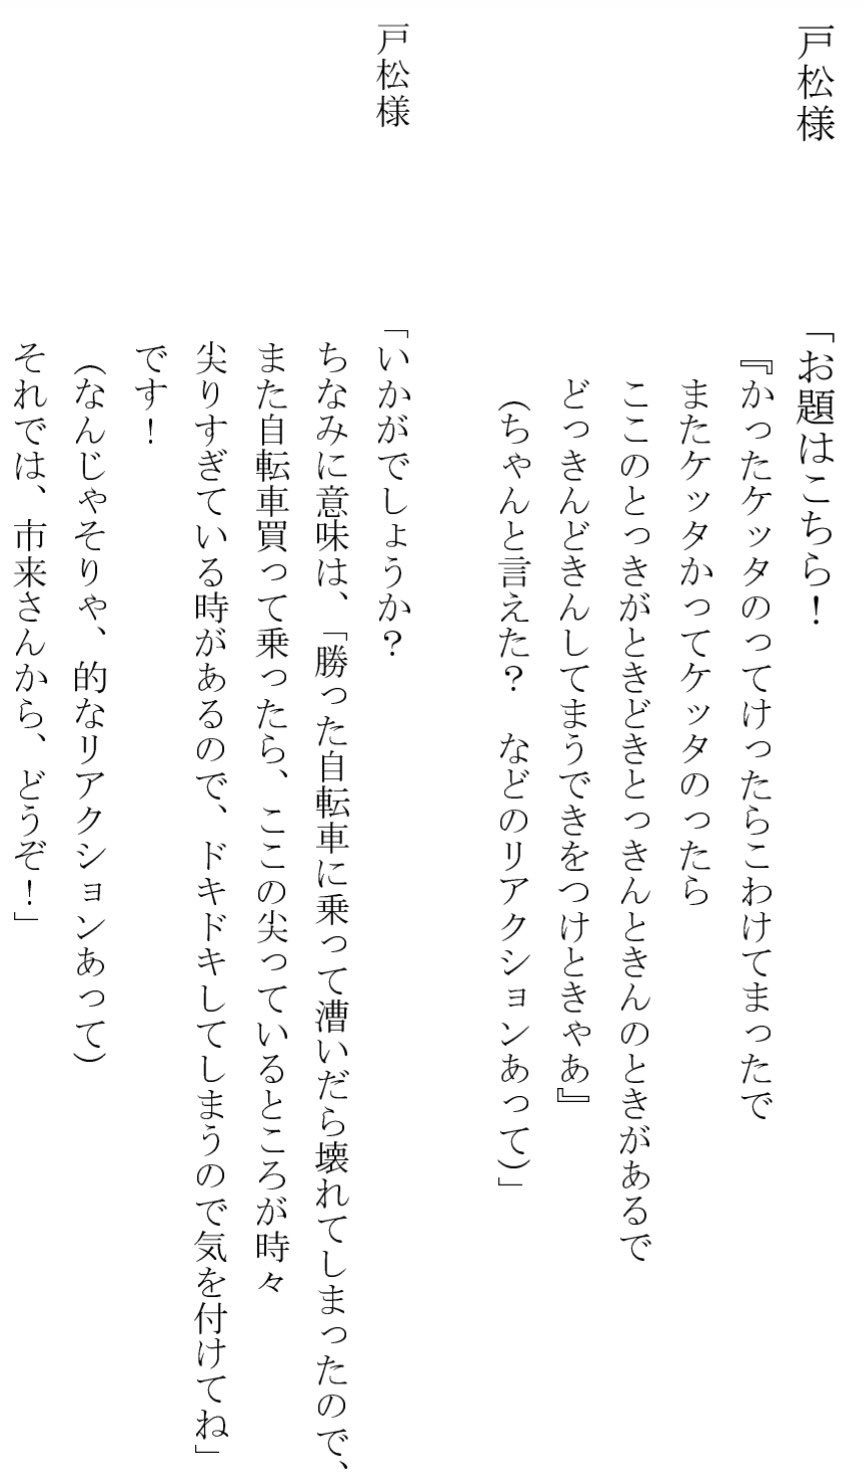 戸松様　「お題はこちら！
『かったケッタのってけったらこわけてまったで
またケッタかってケッタのったら
ここのとっきがときどきとっきんときんのときがあるで
どっきんどきんしてまうできをつけときゃあ』
（ちゃんと言えた？　などのリアクションあって）」
戸松様　「いかがでしょうか？
ちなみに意味は、「勝った自転車に乗って漕いだら壊れてしまったので、
また自転車買って乗ったら、ここの尖っているところが時々
尖りすぎている時があるので、ドキドキしてしまうので気を付けてね」
です！
（なんじゃそりゃ、的なリアクションあって）
それでは、市来さんから、どうぞ！」